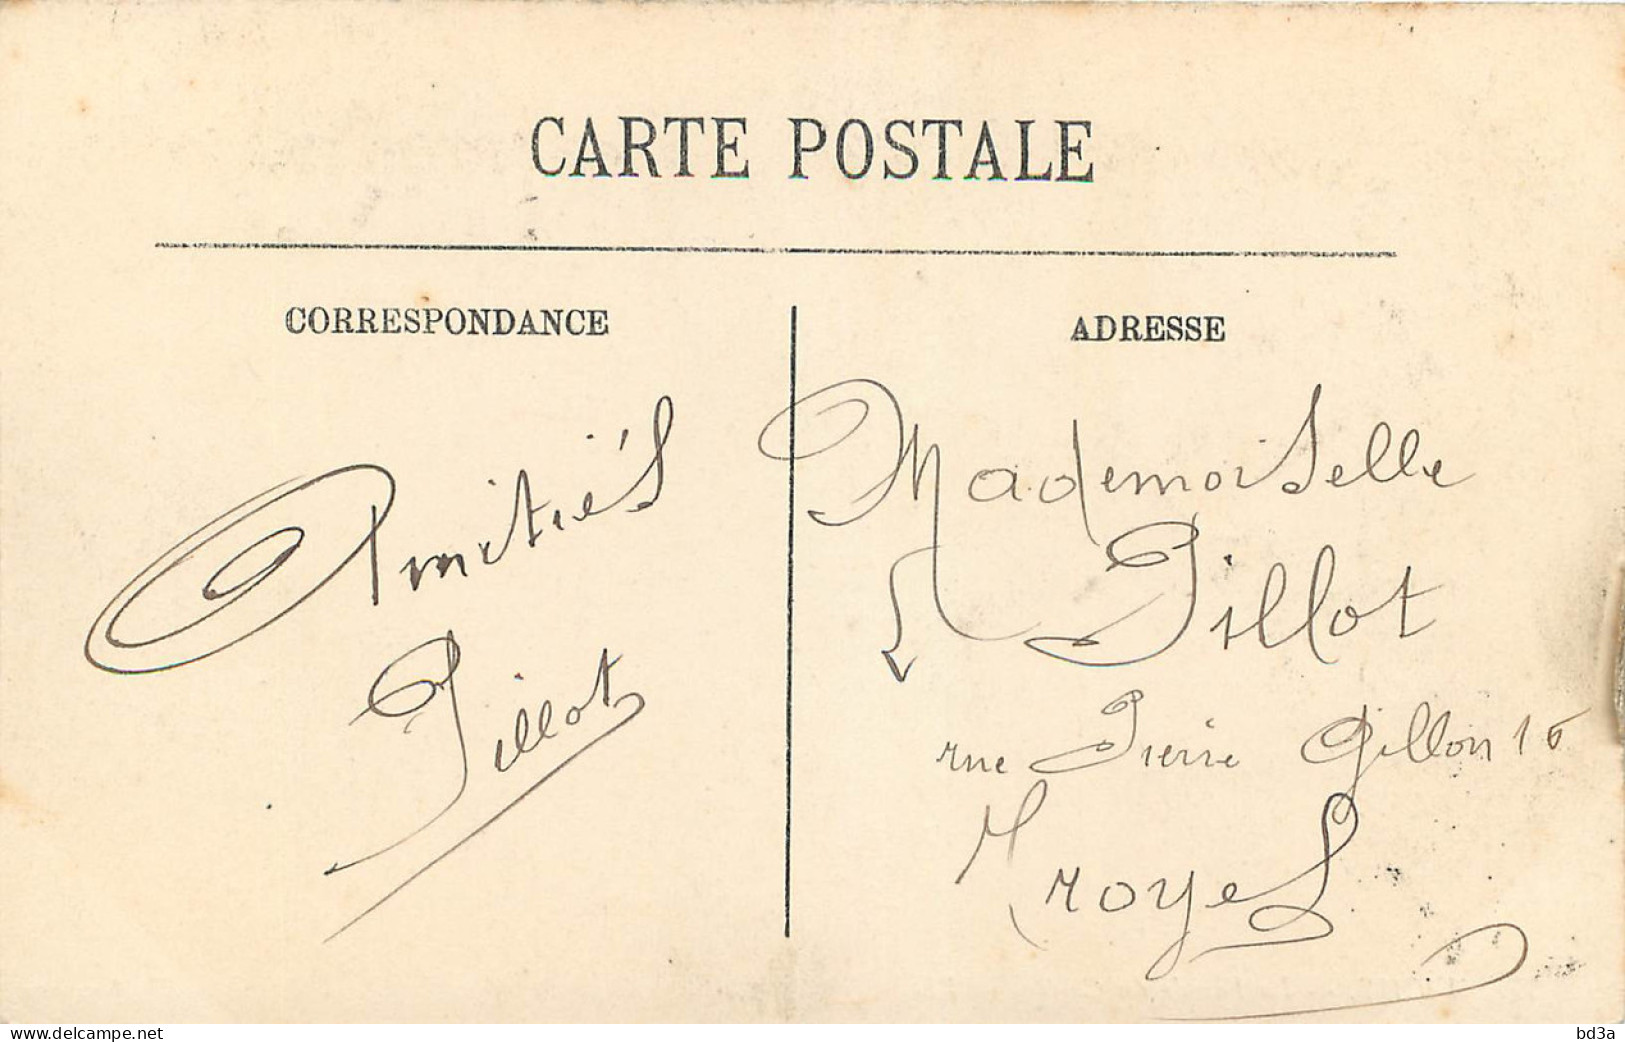 CARTE POSTALE
CORRESPONDANCE
Amitiés
Pillot
ADRESSE
Mademoiselle
Pillot
rue Pierre Gillon 16
Troyes
www.delcampe.net
bd3a